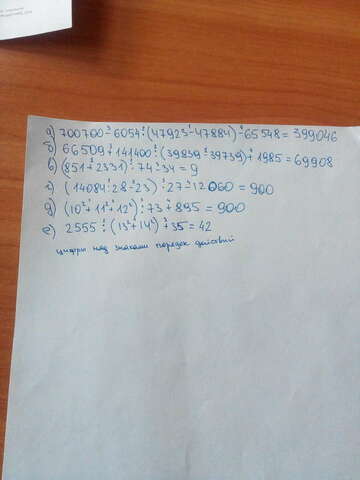 а) 700700-6054·(47923-47884)-65548=399046
б) 66509+141400:(39839-39739)+1985=69908
в) (851+2331):74-34=9
г) (14084:28-23)·27-12060=900
д) (10²+11²+12²):73+895=900
е) 2555:(13²+14²)+35=42
цифры над знаками порядок действий